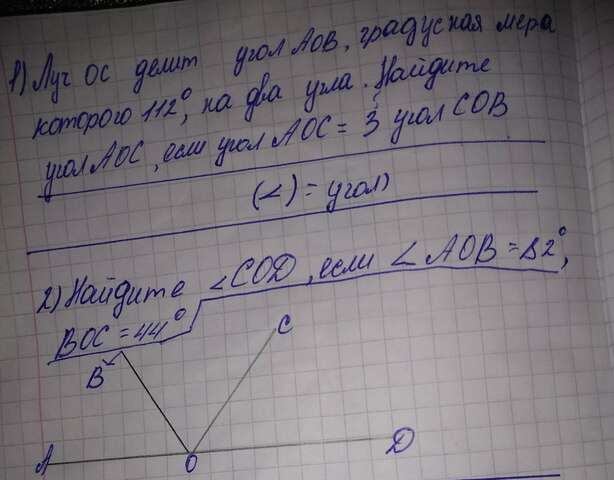 1) Луч ОС делит угол АОВ, градусная мера
которого 112°, на два угла. Найдите
угол АОС, если угол АОС = 3 угол СОВ
(∠) = угол)
2) Найдите ∠COD, если ∠ AOB = 82°,
BOC = 44°
C
B
A
O
D